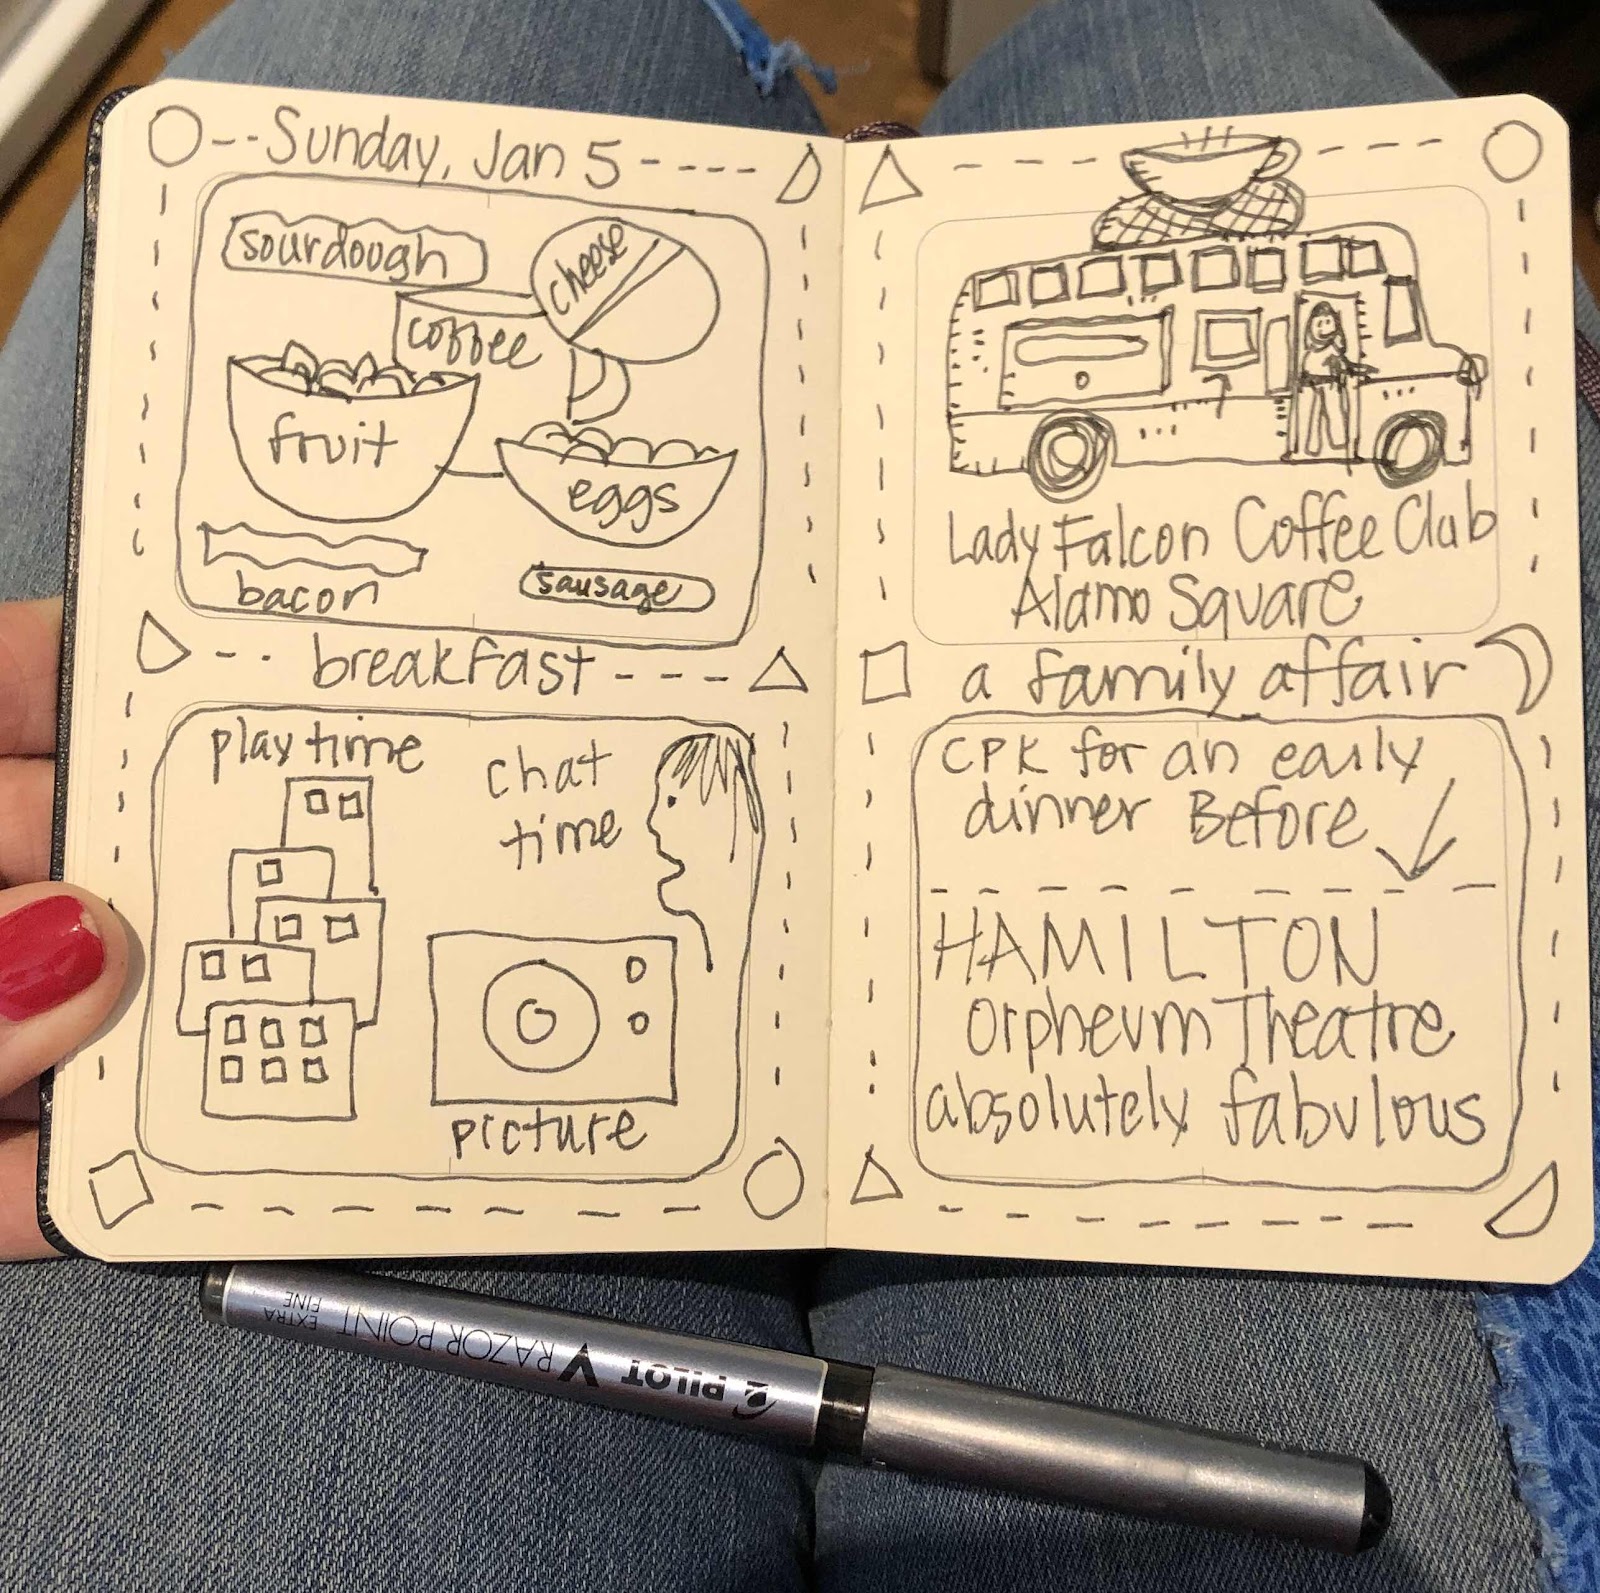 Sunday, Jan 5
sourdough
cheese
coffee
fruit
eggs
bacon
sausage
breakfast
play time
chat
time
picture
Lady Falcon Coffee Club
Alamo Square
a family affair
CPK for an early
dinner Before
HAMILTON
Orpheum Theatre
absolutely fabulous
PILOT V RAZOR POINT EXTRA
FINE